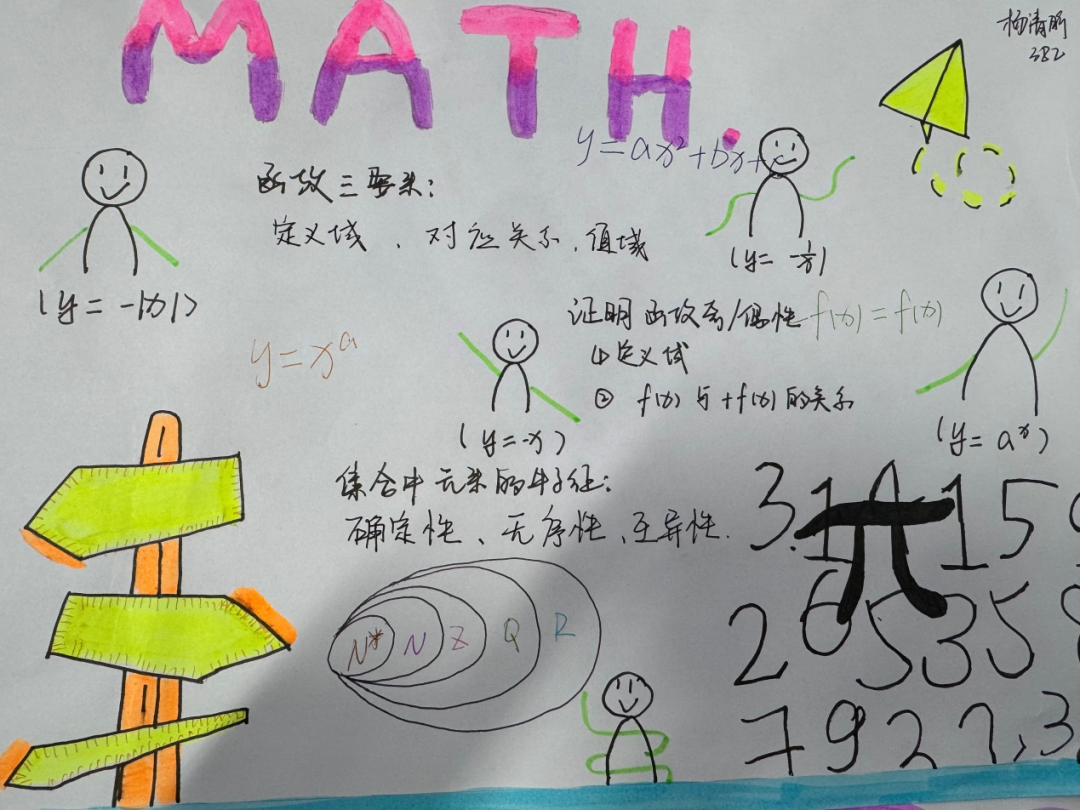 MATH.
杨清
382
y=ax²+bx+c
函数三要素:
定义域、对应关系、值域
(y=-|x|)
(y=-1/x)
证明函数奇/偶性 f(x)=f(x)
①定义域
② f(x)与±f(x)的关系
y=x^a
(y=-x)
(y=a^x)
集合中元素的特征:
确定性、无序性、互异性.
3.1415
π
265358
7927,3
N* N Z Q R